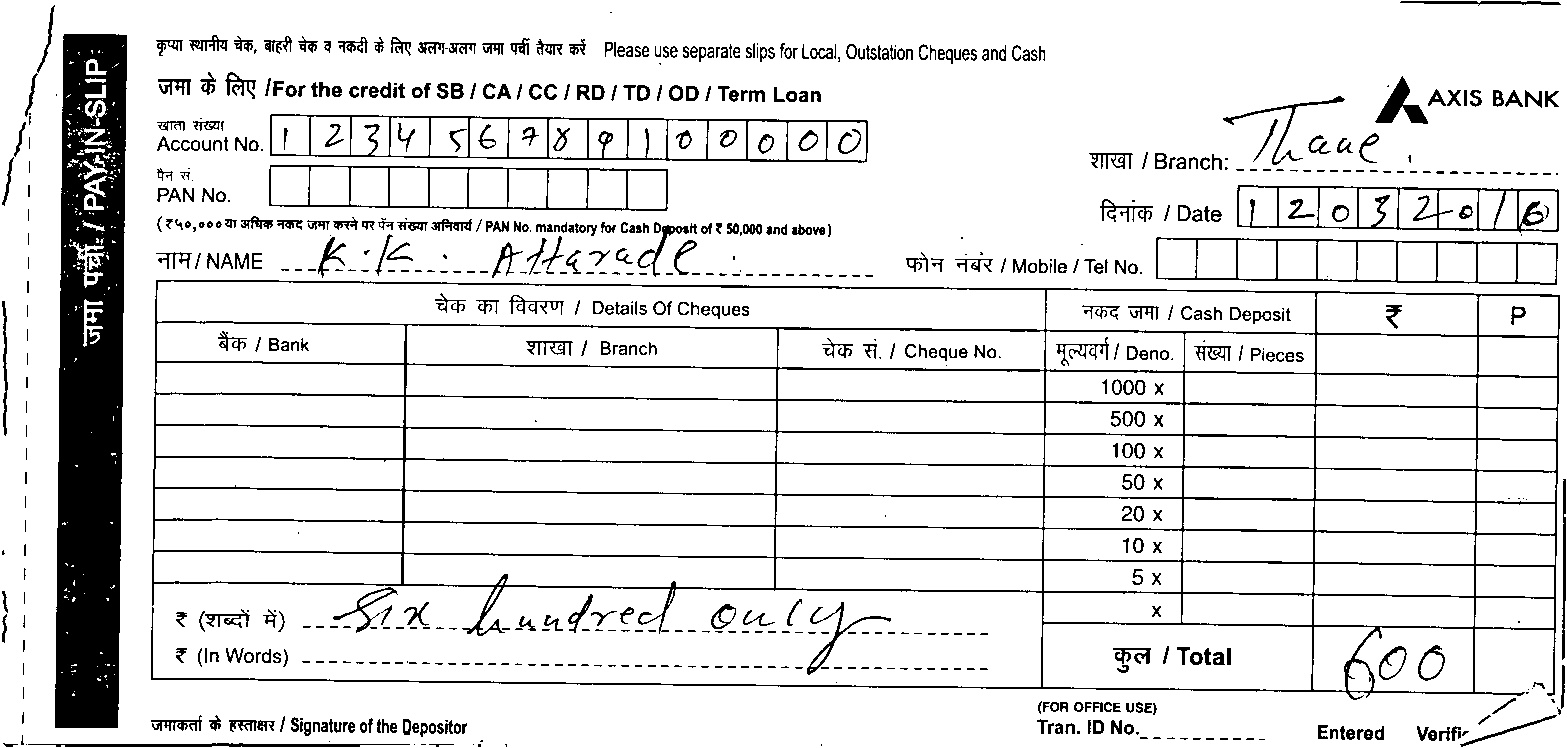 जमा पर्ची / PAY-IN-SLIP
कृप्या स्थानीय चेक, बाहरी चेक व नकदी के लिए अलग-अलग जमा पर्ची तैयार करें Please use separate slips for Local, Outstation Cheques and Cash
जमा के लिए /For the credit of SB / CA / CC / RD / TD / OD / Term Loan
AXIS BANK
खाता संख्या
Account No. 1 2 3 4 5 6 7 8 9 1 0 0 0 0 0
शाखा / Branch: Thane.
पैन सं.
PAN No.
दिनांक / Date 1 2 0 3 2 0 1 6
(₹५०,०००या अधिक नकद जमा करने पर पॅन संख्या अनिवार्य / PAN No. mandatory for Cash Deposit of ₹ 50,000 and above)
नाम/ NAME K.K. Attarade.
फोन नंबर / Mobile / Tel No.
चेक का विवरण / Details Of Cheques नकद जमा / Cash Deposit ₹ P
बैंक / Bank शाखा / Branch चेक सं. / Cheque No. मूल्यवर्ग / Deno. संख्या / Pieces
1000 x
500 x
100 x
50 x
20 x
10 x
5 x
x
₹ (शब्दों में) Six hundred only
₹ (In Words)
कुल / Total 600
जमाकर्ता के हस्ताक्षर / Signature of the Depositor
(FOR OFFICE USE)
Tran. ID No. Entered